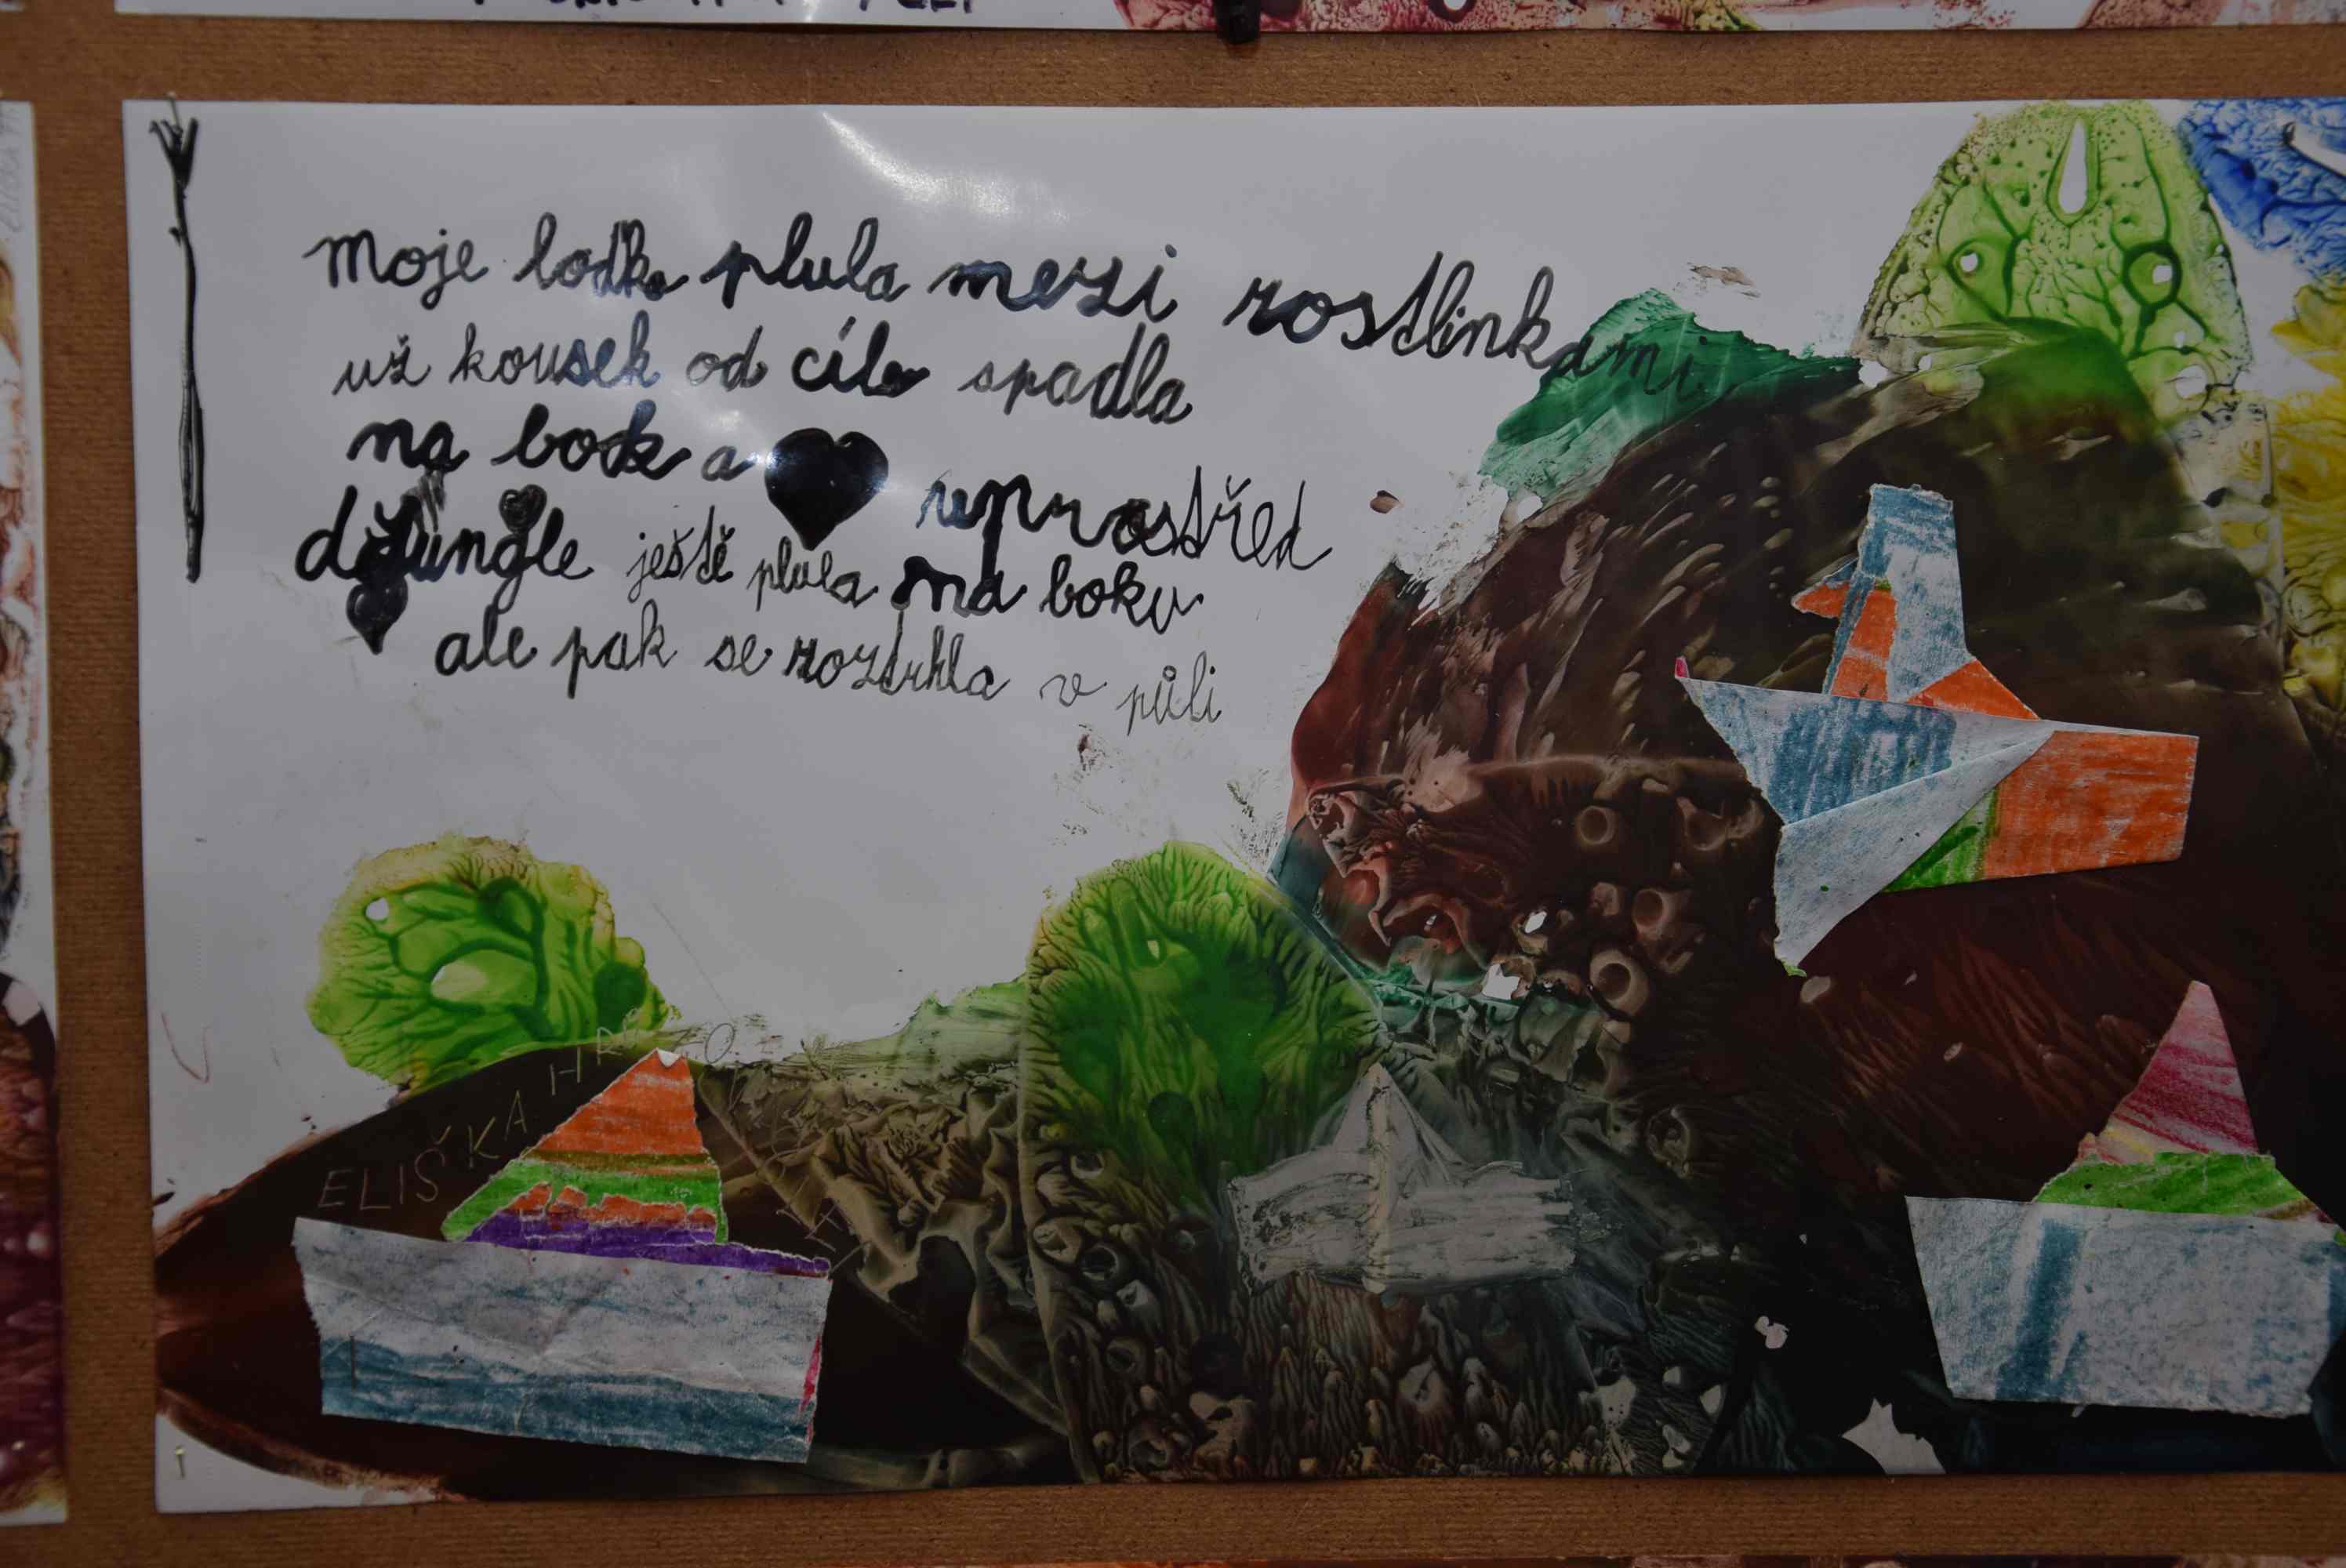 moje loďka plula mezi rostlinkami
už kousek od cíle spadla
na bok a uprostřed
džungle ještě plula na boku
ale pak se roztrhla v půli
ELIŠKA